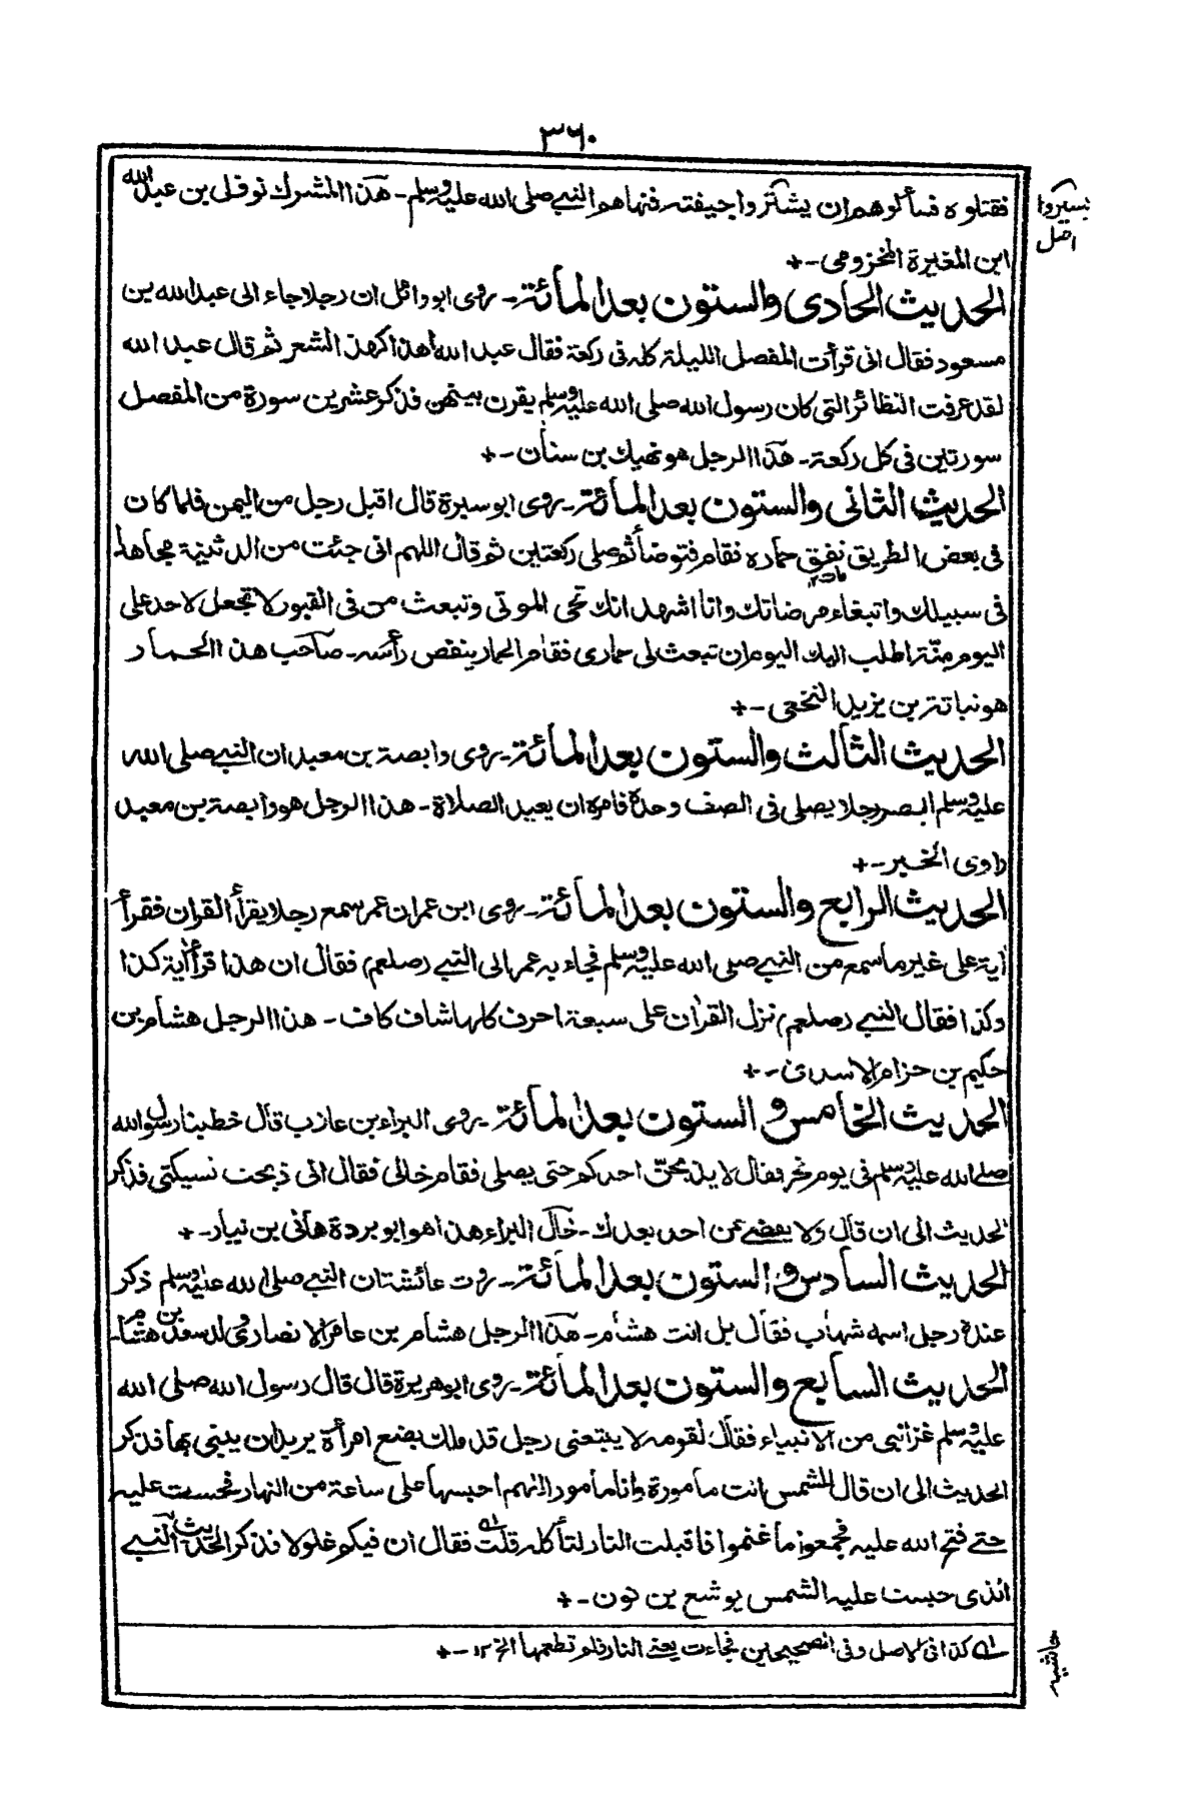 ٣٦٠
فقتلوه فسألوهم ان يشتروا جيفته فنهاهم النبي صلى الله عليه وسلم ـ هذا المشرك نوفل بن عبد الله
ابن المغيرة المخزومى ـ +
الحديث الحادى والستون بعد المأئة ـ روى ابو وائل ان رجلا جاء الى عبد الله بن
مسعود فقال انى قرأت المفصل الليلة كله فى ركعة فقال عبد الله أهذا كهذ الشعر ثم قال عبد الله
لقد عرفت النظائر التى كان رسول الله صلى الله عليه وسلم يقرن بينهن فذكر عشرين سورة من المفصل
سورتين فى كل ركعة ـ هذا الرجل هو نهيك بن سنان ـ +
الحديث الثانى والستون بعد المأئة ـ روى ابو سبرة قال اقبل رجل من اليمن فلما كان
فى بعض الطريق نفق حماره فقام فتوضأ ثم صلى ركعتين ثم قال اللهم انى جئت من الدثينة مجاهدا
مات ١٢
فى سبيلك وابتغاء مرضاتك وانا اشهد انك تحى الموتى وتبعث من فى القبور لا تجعل لاحد على
اليوم منة اطلب اليك اليوم ان تبعث لى حمارى فقام الحمار ينفض رأسه ـ صاحب هذا الحمار
هو نباتة بن يزيد النخعى ـ +
الحديث الثالث والستون بعد المأئة ـ روى وابصة بن معبد ان النبي صلى الله
عليه وسلم ابصر رجلا يصلى فى الصف وحده فامره ان يعيد الصلاة ـ هذا الرجل هو وابصة بن معبد
راوى الخبر ـ +
الحديث الرابع والستون بعد المأئة ـ روى ابن عمر ان عمر سمع رجلا يقرأ القران فقرأ
اية على غير ما سمع من النبي صلى الله عليه وسلم فجاء به عمر الى النبي (صلعم) فقال ان هذا قرأ أية كذا
وكذا فقال النبي (صلعم) نزل القران على سبعة احرف كلها شاف كاف ـ هذا الرجل هشام بن
حكيم بن حزام الاسدى ـ +
الحديث الخامس والستون بعد المأئة ـ روى البراء بن عازب قال خطبنا رسول الله
صلى الله عليه وسلم فى يوم نحر فقال لا يذبحن احدكم حتى يصلى فقام خالى فقال انى ذبحت نسيكتى فذكر
الحديث الى ان قال ولا يقضى عن احد بعدك ـ خال البراء هذا هو ابو بردة هانى بن نيار ـ +
الحديث السادس والستون بعد المأئة ـ روت عائشة ان النبي صلى الله عليه وسلم ذكر
عنده رجل اسمه شهاب فقال بل انت هشام ـ هذا الرجل هشام بن عامر الانصارى والد سعد بن هشام ـ
الحديث السابع والستون بعد المأئة ـ روى ابو هريرة قال قال رسول الله صلى الله
عليه وسلم غزا نبى من الانبياء فقال لقومه لا يتبعنى رجل قد ملك بضع امرأة يريد ان يبنى بها فذكر
الحديث الى ان قال للشمس انت مأمورة وانا مأمور اللهم احبسها على ساعة من النهار فحبست عليه
حتى فتح الله عليه فجمعوا ما غنموا فاقبلت النار لتأكله قلت فقال ان فيكم غلولا فذكر الحديث النبي
الذى حبست عليه الشمس يوشع بن نون ـ +
كذا فى الاصل وفى الصحيحين فجاءت يعنى النار فلم تطعمها الخ ١٢ ـ +
اصل
حاشيه